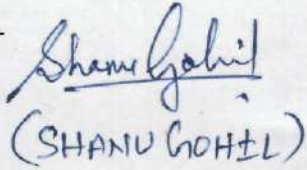 Shanu Gohil
(SHANU GOHIL)